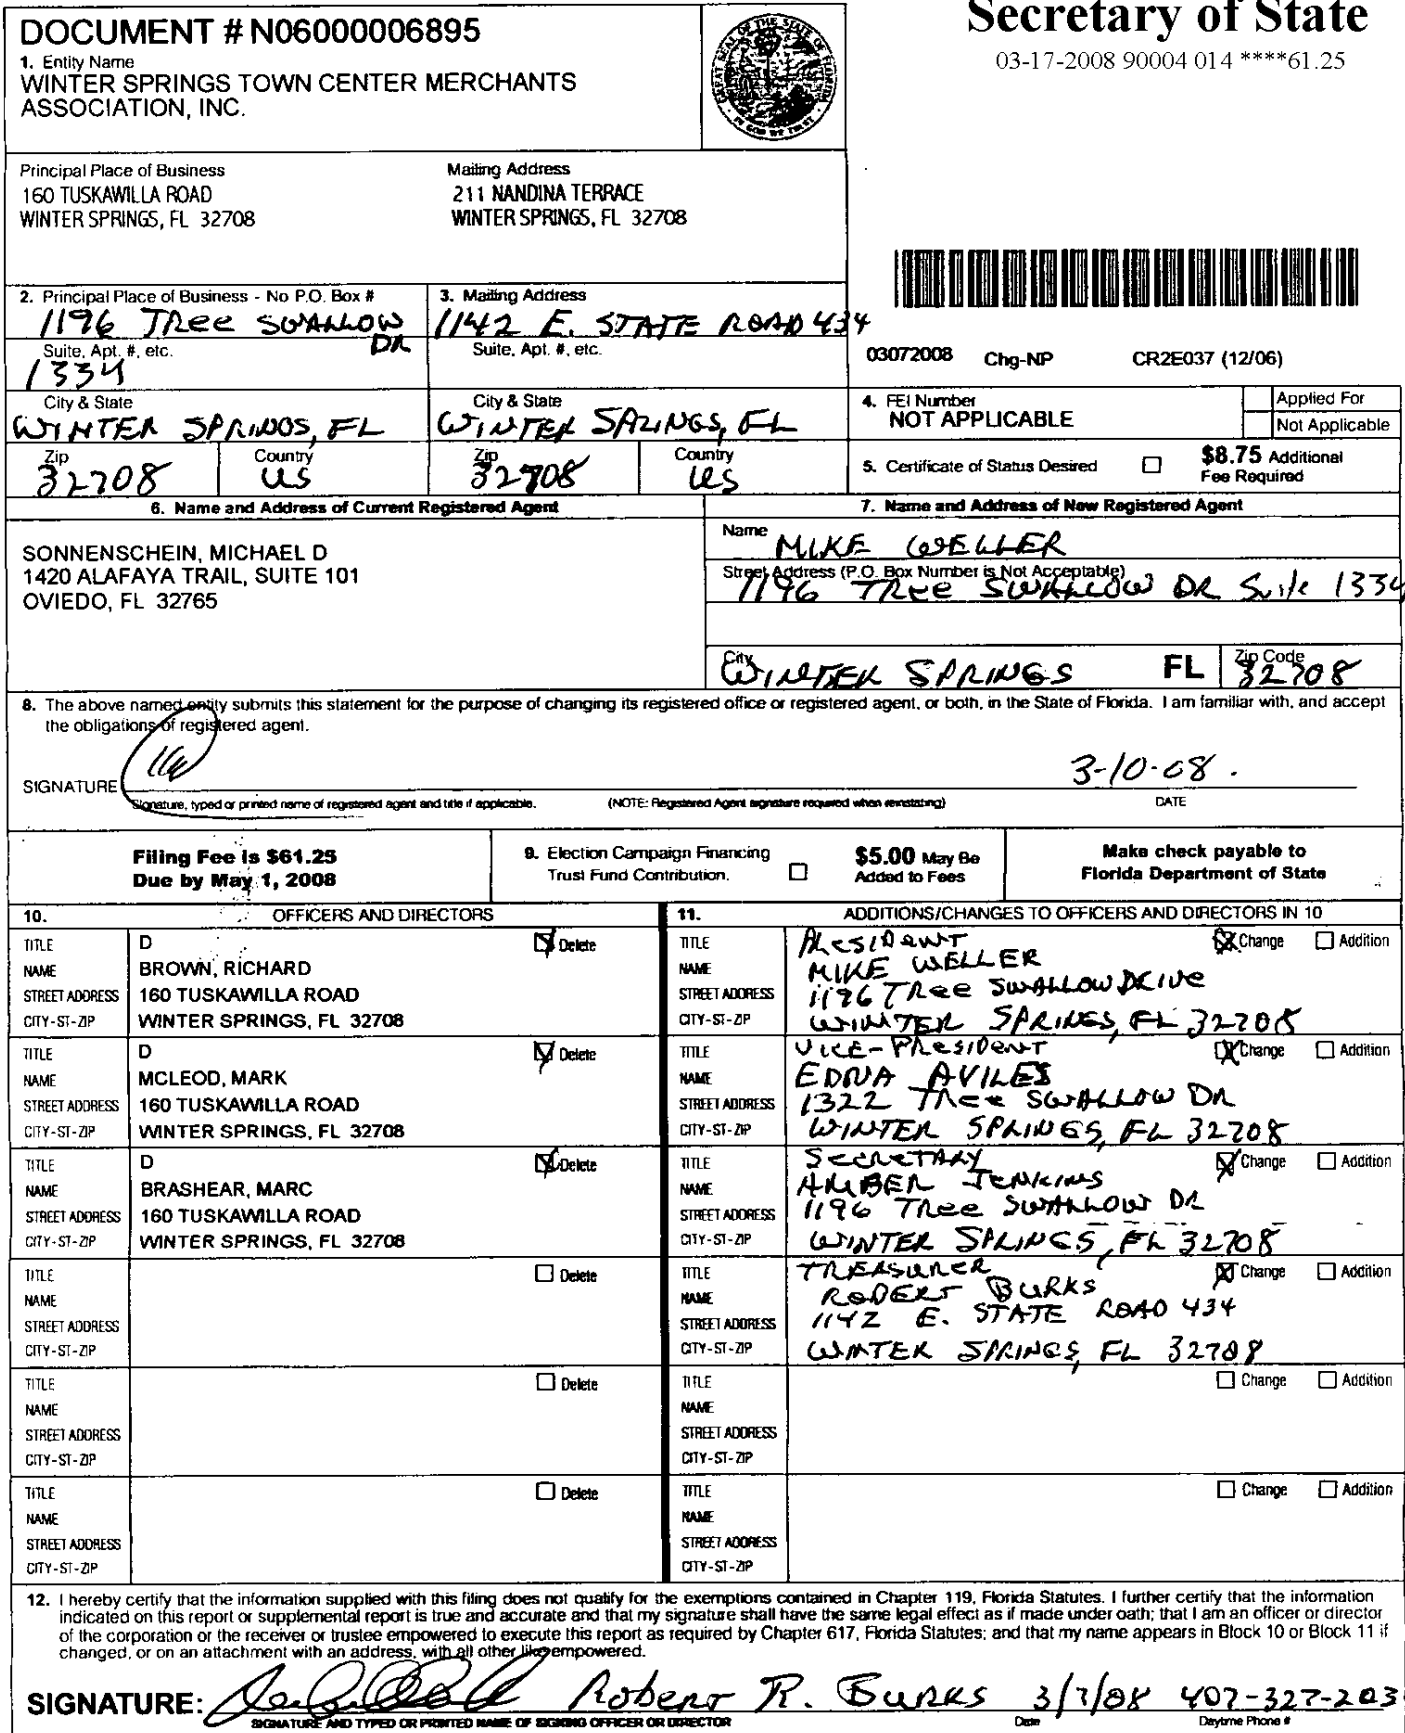 Secretary of State
03-17-2008 90004 014 ****61.25
DOCUMENT # N06000006895
1. Entity Name
WINTER SPRINGS TOWN CENTER MERCHANTS
ASSOCIATION, INC.
Principal Place of Business
160 TUSKAWILLA ROAD
WINTER SPRINGS, FL 32708
Mailing Address
211 NANDINA TERRACE
WINTER SPRINGS, FL 32708
2. Principal Place of Business - No P.O. Box #
1196 TRee SWALLOW
DR
Suite, Apt. #, etc.
1334
City & State
WINTER SPRINGS, FL
Zip
32708
Country
US
3. Mailing Address
1142 E. STATE ROAD 434
Suite, Apt. #, etc.
City & State
WINTER SPRINGS, FL
Zip
32708
Country
US
03072008 Chg-NP CR2E037 (12/06)
4. FEI Number
NOT APPLICABLE
Applied For
Not Applicable
5. Certificate of Status Desired
$8.75 Additional
Fee Required
6. Name and Address of Current Registered Agent
SONNENSCHEIN, MICHAEL D
1420 ALAFAYA TRAIL, SUITE 101
OVIEDO, FL 32765
7. Name and Address of New Registered Agent
Name
MIKE WELLER
Street Address (P.O. Box Number is Not Acceptable)
1196 TRee SWALLOW DR Suite 1334
City
WINTER SPRINGS FL
Zip Code
32708
8. The above named entity submits this statement for the purpose of changing its registered office or registered agent, or both, in the State of Florida. I am familiar with, and accept
the obligations of registered agent.
SIGNATURE
3-10-08.
Signature, typed or printed name of registered agent and title if applicable. (NOTE: Registered Agent signature required when reinstating) DATE
Filing Fee is $61.25
Due by May 1, 2008
9. Election Campaign Financing
Trust Fund Contribution.
$5.00 May Be
Added to Fees
Make check payable to
Florida Department of State
10. OFFICERS AND DIRECTORS
TITLE D Delete
NAME BROWN, RICHARD
STREET ADDRESS 160 TUSKAWILLA ROAD
CITY-ST-ZIP WINTER SPRINGS, FL 32708
TITLE D Delete
NAME MCLEOD, MARK
STREET ADDRESS 160 TUSKAWILLA ROAD
CITY-ST-ZIP WINTER SPRINGS, FL 32708
TITLE D Delete
NAME BRASHEAR, MARC
STREET ADDRESS 160 TUSKAWILLA ROAD
CITY-ST-ZIP WINTER SPRINGS, FL 32708
TITLE Delete
NAME
STREET ADDRESS
CITY-ST-ZIP
TITLE Delete
NAME
STREET ADDRESS
CITY-ST-ZIP
TITLE Delete
NAME
STREET ADDRESS
CITY-ST-ZIP
11. ADDITIONS/CHANGES TO OFFICERS AND DIRECTORS IN 10
TITLE PResIDeNT Change Addition
NAME MIKE WELLER
STREET ADDRESS 1196 TRee SWALLOW DRIVe
CITY-ST-ZIP WINTER SPRINGS, FL 32708
TITLE VICE-PResIDeNT Change Addition
NAME EDNA AVILES
STREET ADDRESS 1322 TRee SWALLOW DR
CITY-ST-ZIP WINTER SPRINGS, FL 32708
TITLE SecReTARY Change Addition
NAME AMBER JENKINS
STREET ADDRESS 1196 TRee SWALLOW DR
CITY-ST-ZIP WINTER SPRINGS, FL 32708
TITLE TREASURER Change Addition
NAME ROBERT BURKS
STREET ADDRESS 1142 E. STATE ROAD 434
CITY-ST-ZIP WINTER SPRINGS, FL 32708
TITLE Change Addition
NAME
STREET ADDRESS
CITY-ST-ZIP
TITLE Change Addition
NAME
STREET ADDRESS
CITY-ST-ZIP
12. I hereby certify that the information supplied with this filing does not qualify for the exemptions contained in Chapter 119, Florida Statutes. I further certify that the information
indicated on this report or supplemental report is true and accurate and that my signature shall have the same legal effect as if made under oath; that I am an officer or director
of the corporation or the receiver or trustee empowered to execute this report as required by Chapter 617, Florida Statutes; and that my name appears in Block 10 or Block 11 if
changed, or on an attachment with an address, with all other like empowered.
SIGNATURE: Robert R. Burks 3/7/08 407-327-203
SIGNATURE AND TYPED OR PRINTED NAME OF SIGNING OFFICER OR DIRECTOR Date Daytime Phone #